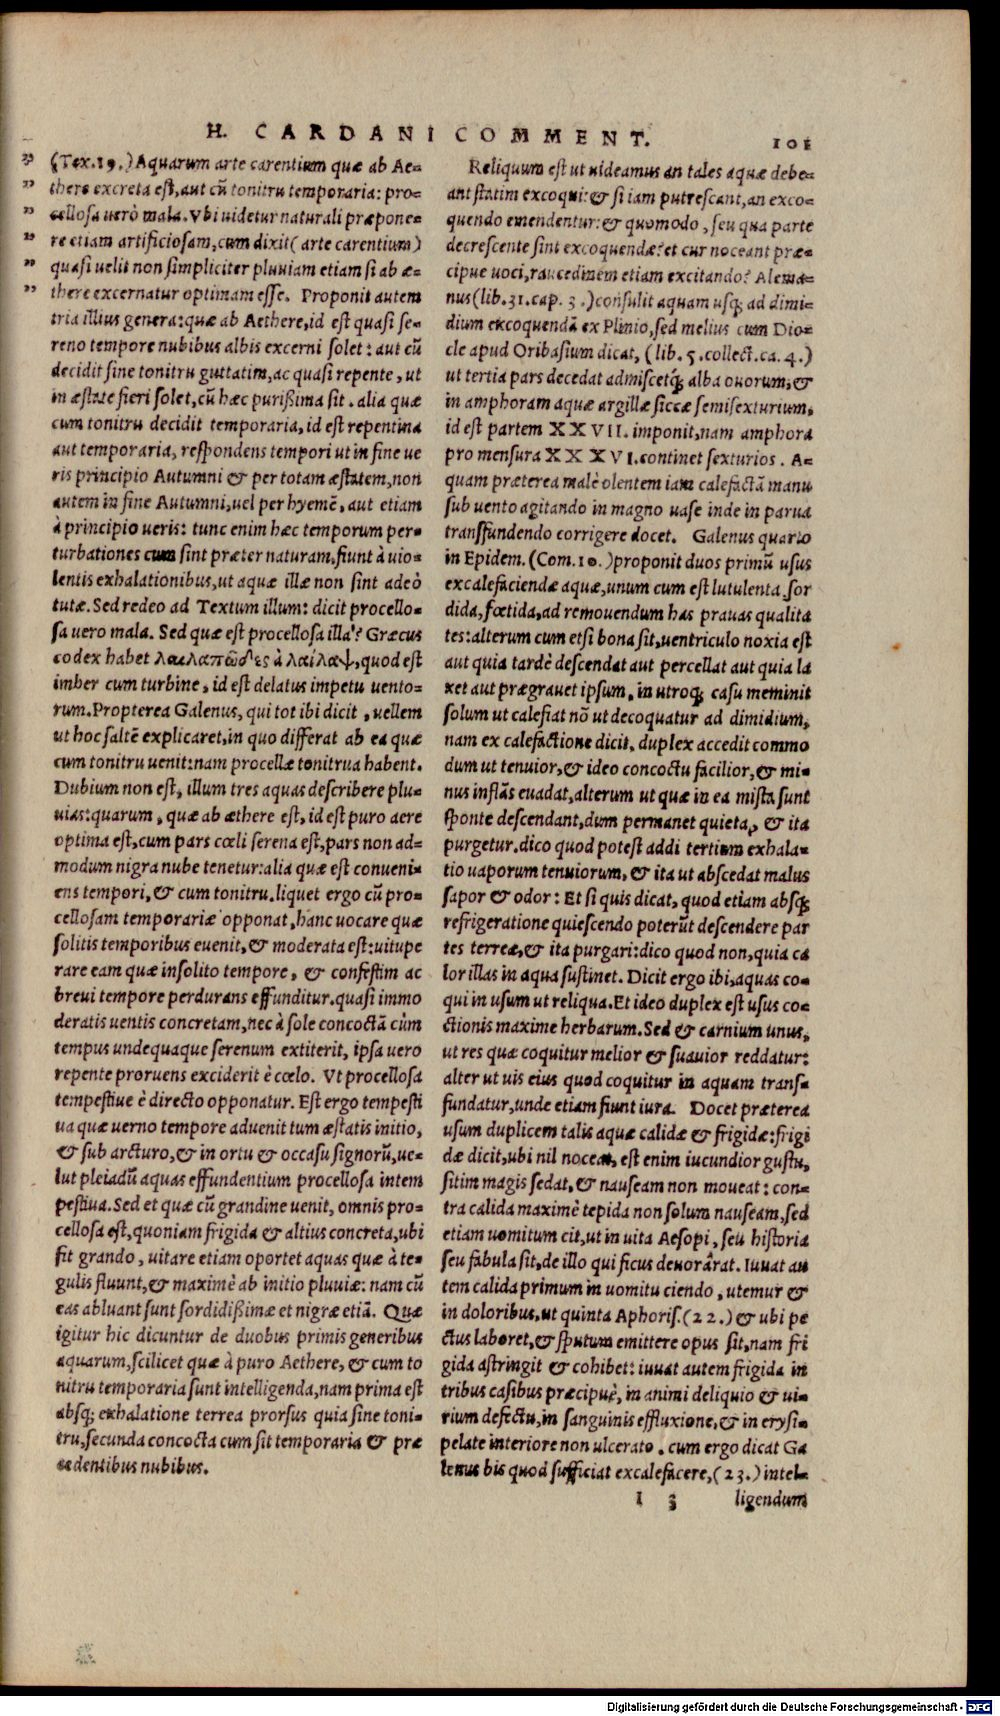 H. CARDANI COMMENT. 101
(Tex.19.) Aquarum arte carentium quæ ab Ae-
there excreta est, aut cū tonitru temporaria: pro-
cellosa uerò mala. Vbi uidetur naturali præpone-
re etiam artificiosam, cum dixit (arte carentium)
quasi uelit non simpliciter pluuiam etiam si ab æ-
there excernatur optimam esse. Proponit autem
tria illius genera: quæ ab Aethere, id est quasi se-
reno tempore nubibus albis excerni solet: aut cū
decidit sine tonitru guttatim, ac quasi repente, ut
in æstate fieri solet, cū hæc purißima sit. alia quæ
cum tonitru decidit temporaria, id est repentina
aut temporaria, respondens tempori ut in fine ue
ris principio Autumni & per totam æstatem, non
autem in fine Autumni, uel per hyemē, aut etiam
à principio ueris: tunc enim hæc temporum per-
turbationes cum sint præter naturam, fiunt à uio-
lentis exhalationibus, ut aquæ illæ non sint adeò
tutæ. Sed redeo ad Textum illum: dicit procello-
sa uero mala. Sed quæ est procellosa illa? Græcus
codex habet λαιλαπῶδες à λαίλαψ, quod est
imber cum turbine, id est delatus impetu uento-
rum. Propterea Galenus, qui tot ibi dicit, uellem
ut hoc saltē explicaret, in quo differat ab ea quæ
cum tonitru uenit: nam procellæ tonitrua habent.
Dubium non est, illum tres aquas describere plu-
uias: quarum, quæ ab æthere est, id est puro aere
optima est, cum pars cœli serena est, pars non ad-
modum nigra nube tenetur: alia quæ est conueni-
ens tempori, & cum tonitru. liquet ergo cū pro-
cellosam temporariæ opponat, hanc uocare quæ
solitis temporibus euenit, & moderata est: uitupe
rare eam quæ insolito tempore, & confestim ac
breui tempore perdurans effunditur. quasi immo
deratis uentis concretam, nec à sole concoctā cùm
tempus undequaque serenum extiterit, ipsa uero
repente proruens exciderit è cœlo. Vt procellosa
tempestiue è directo opponatur. Est ergo tempesti
ua quæ uerno tempore aduenit tum æstatis initio,
& sub arcturo, & in ortu & occasu signorū, ue-
lut pleiadū aquas effundentium procellosa intem
pestiua. Sed et quæ cū grandine uenit, omnis pro-
cellosa est, quoniam frigida & altius concreta, ubi
fit grando, uitare etiam oportet aquas quæ à te-
gulis fluunt, & maximè ab initio pluuiæ: nam cū
eas abluant sunt sordidißimæ et nigræ etiā. Quæ
igitur hic dicuntur de duobus primis generibus
aquarum, scilicet quæ à puro Aethere, & cum to
nitru temporaria sunt intelligenda, nam prima est
absq; exhalatione terrea prorsus quia sine toni-
tru, secunda concocta cum sit temporaria & præ
cedentibus nubibus.
Reliquum est ut uideamus an tales aquæ debe-
ant statim excoqui: & si iam putrescant, an exco-
quendo emendentur: & quomodo, seu qua parte
decrescente sint excoquendæ? et cur noceant præ-
cipue uoci, raucedinem etiam excitando? Alema-
nus (lib. 31. cap. 3.) consulit aquam usq; ad dimi-
dium excoquendā ex Plinio, sed melius cum Dio-
cle apud Oribasium dicat, (lib. 5. collect. ca. 4.)
ut tertia pars decedat admiscetq́; alba ouorum, &
in amphoram aquæ argillæ siccæ semisexturium,
id est partem XXVII. imponit, nam amphora
pro mensura XXXVI. continet sexturios. A-
quam præterea malè olentem iam calefactā manu
sub uento agitando in magno uase inde in parua
transfundendo corrigere docet. Galenus quarto
in Epidem. (Com. 10.) proponit duos primū usus
excalefaciendæ aquæ, unum cum est lutulenta sor
dida, fœtida, ad remouendum has prauas qualita
tes: alterum cum etsi bona sit, uentriculo noxia est
aut quia tardè descendat aut percellat aut quia la
xet aut prægrauet ipsum, in utroq; casu meminit
solum ut calefiat nō ut decoquatur ad dimidium,
nam ex calefactione dicit, duplex accedit commo
dum ut tenuior, & ideo concoctu facilior, & mi-
nus inflās euadat, alterum ut quæ in ea mista sunt
sponte descendant, dum permanet quieta, & ita
purgetur. dico quod potest addi tertium exhala-
tio uaporum tenuiorum, & ita ut abscedat malus
sapor & odor: Et si quis dicat, quod etiam absq;
refrigeratione quiescendo poterūt descendere par
tes terreæ, & ita purgari: dico quod non, quia ca
lor illas in aqua sustinet. Dicit ergo ibi, aquas co-
qui in usum ut reliqua. Et ideo duplex est usus co-
ctionis maxime herbarum. Sed & carnium unus,
ut res quæ coquitur melior & suauior reddatur:
alter ut uis eius quod coquitur in aquam trans-
fundatur, unde etiam fiunt iura. Docet præterea
usum duplicem talis aquæ calidæ & frigidæ: frigi
dæ dicit, ubi nil noceat, est enim iucundior gustu,
sitim magis sedat, & nauseam non moueat: con-
tra calida maximè tepida non solum nauseam, sed
etiam uomitum cit, ut in uita Aesopi, seu historia
seu fabula sit, de illo qui ficus deuorârat. Iuuat au
tem calida primum in uomitu ciendo, utemur &
in doloribus, ut quinta Aphoris. (22.) & ubi pe
ctus laboret, & sputum emittere opus sit, nam fri
gida astringit & cohibet: iuuat autem frigida in
tribus casibus præcipuè, in animi deliquio & ui-
rium defectu, in sanguinis effluxione, & in erysi-
pelate interiore non ulcerato. cum ergo dicat Ga
lenus bis quod sufficiat excalefacere, (23.) intel-
I 3 ligendum
Digitalisierung gefördert durch die Deutsche Forschungsgemeinschaft - DFG